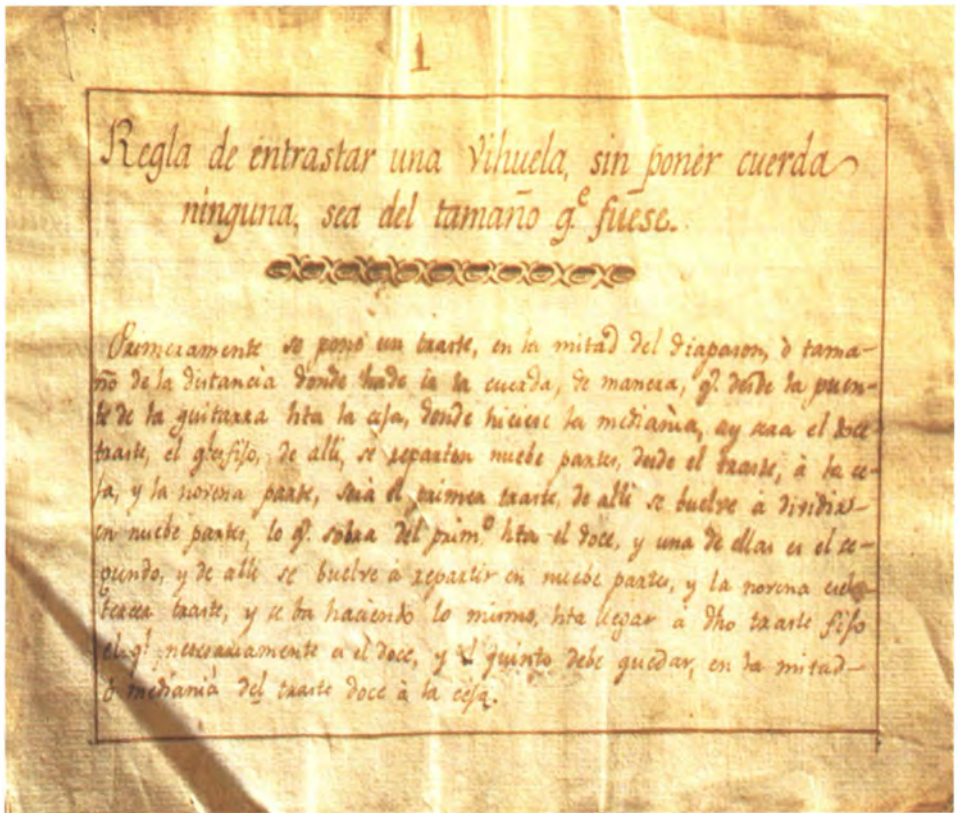 1
Regla de entrastar una Vihuela, sin poner cuerda
ninguna, sea del tamaño q.e fuese.
Primeramente se pone un traste, en la mitad del diapason, ò tama-
ño de la distancia donde hade ir la cuerda, de manera, q.e desde la puen-
te de la guitarra hta la cefa, donde hiciese la mediania, ay sera el doce
traste, el q.l es fijo, de alli, se reparten nuebe partes, desde el traste, à la ce-
fa, y la novena parte, serà el primer traste, de alli se buelve à dividir
en nuebe partes, lo q.e sobra del prim.o hta el doce, y una de ellas es el se-
gundo, y de alli se buelve à repartir en nuebe partes, y la novena es el
tercer traste, y se ba haciendo lo mismo, hta llegar à dho traste fijo
el q.l necesariamente es el doce, y el quinto debe quedar, en la mitad
ò mediania del traste doce à la cefa.